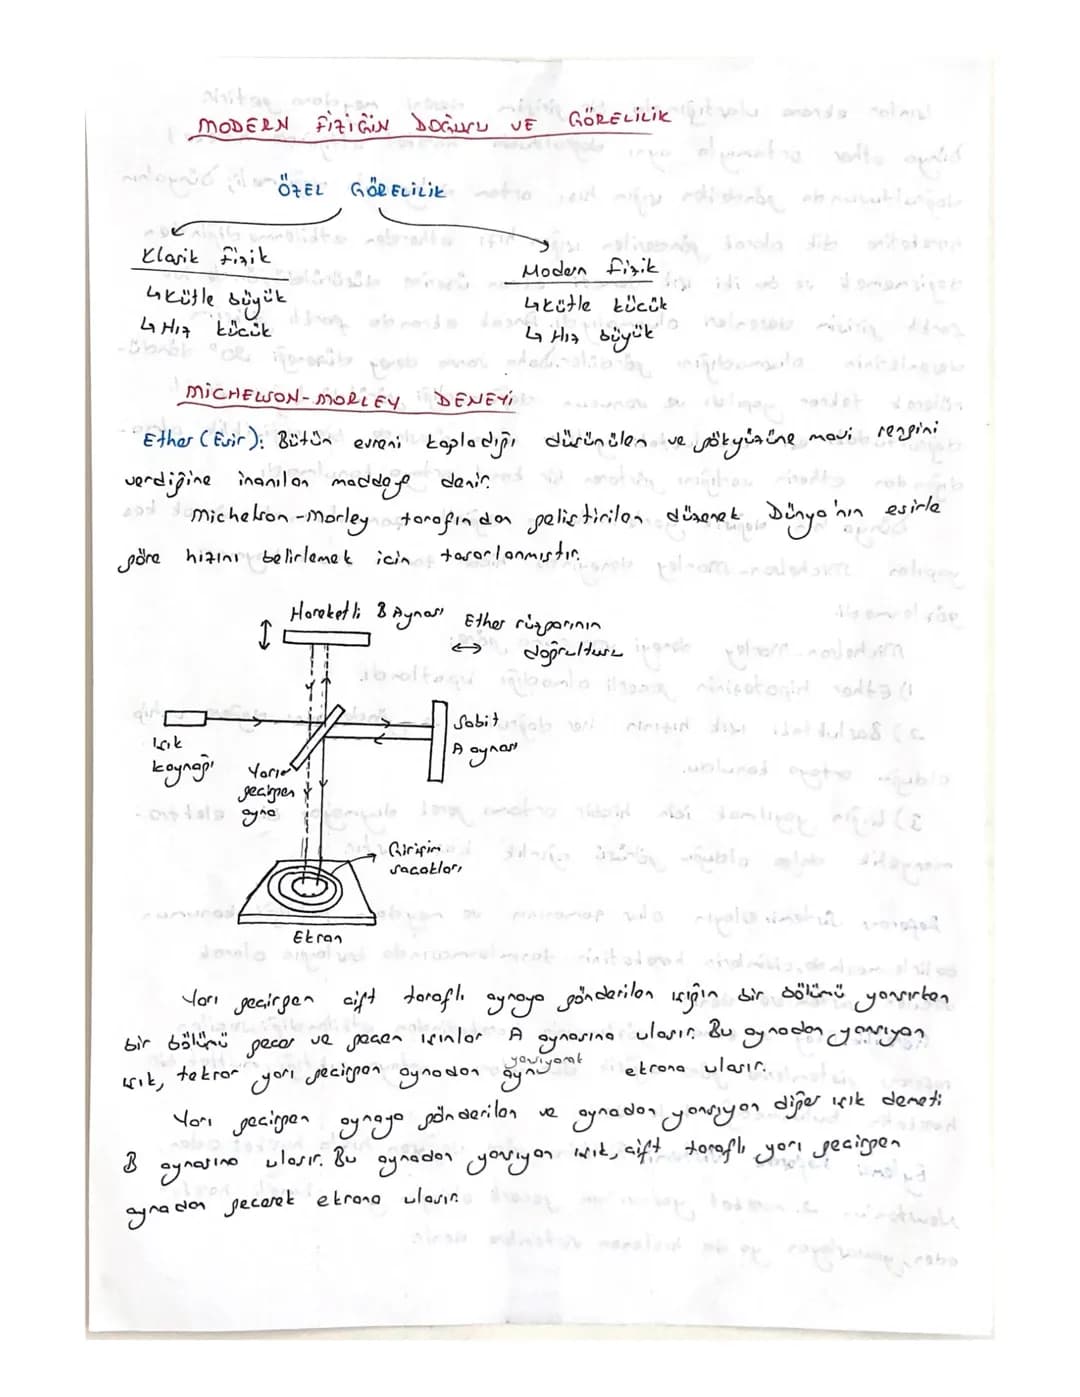 MODERN FİZİĞİN DOĞUŞU VE GÖRELİLİK
ÖZEL GÖRELİLİK
Klasik Fizik
↳ Kütle büyük
↳ Hız küçük
Modern Fizik
↳ Kütle küçük
↳ Hız büyük
MICHELSON-MORLEY DENEYİ
Ether (Esir): Bütün evreni kapladığı düşünülen ve gökyüzüne mavi rengini
verdiğine inanılan maddeye denir.
Michelson-Morley tarafından geliştirilen düzenek Dünya'nın esirle
göre hızını belirlemek için tasarlanmıştır.
Hareketli B Aynası
Ether rüzgarının
↔ doğrultusu
Işık
kaynağı
Yarı
geçirgen
ayna
Sabit
A aynası
Girişim
saçakları
Ekran
Yarı geçirgen çift taraflı aynaya gönderilen ışığın bir bölümü yansırken
bir bölümü geçer ve geçen ışınlar A aynasına ulaşır. Bu aynadan yansıyan
ışık, tekrar yarı geçirgen aynadan yansıyarak ekrana ulaşır.
Yarı geçirgen aynaya gönderilen ve aynadan yansıyan diğer ışık demeti
B aynasına ulaşır. Bu aynadan yansıyan ışık, çift taraflı yarı geçirgen
aynadan geçerek ekrana ulaşır.